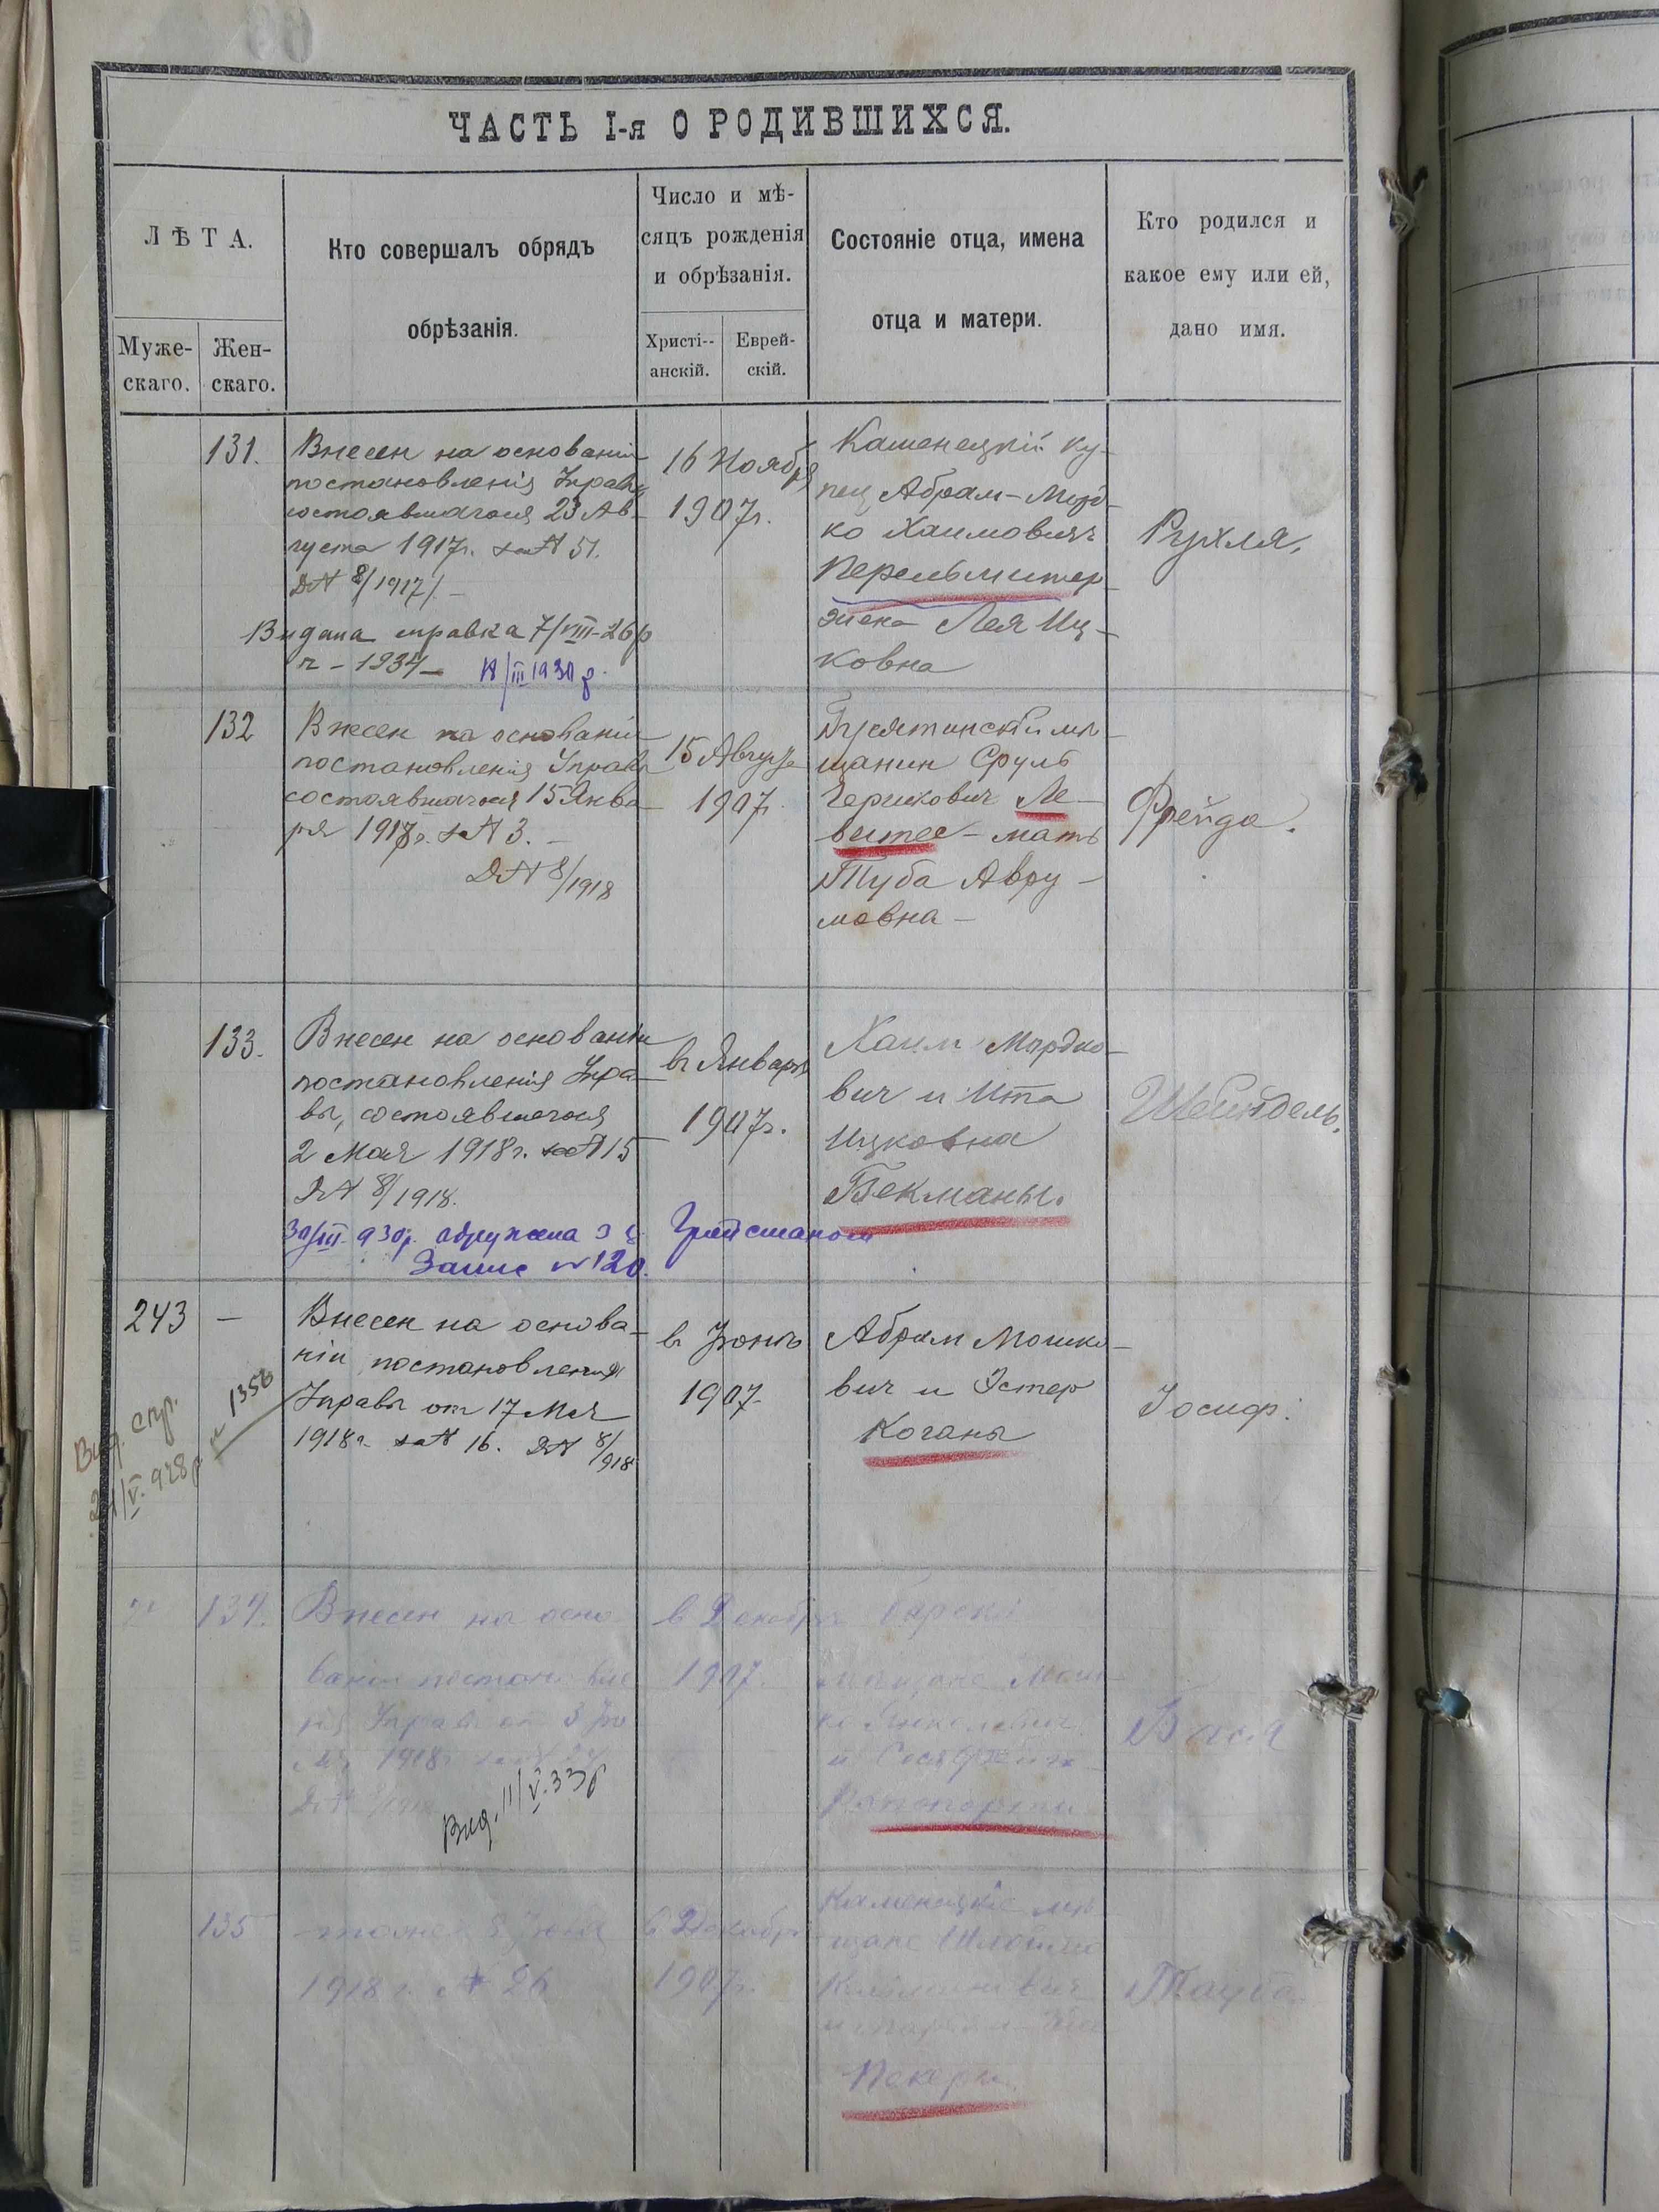 ЧАСТЬ I-я О РОДИВШИХСЯ.
ЛѢТА.
Муже-
скаго.
Жен-
скаго.
Кто совершалъ обрядъ
обрѣзанія.
Число и мѣ-
сяцъ рожденія
и обрѣзанія.
Христі--
анскій.
Еврей-
скій.
Состояніе отца, имена
отца и матери.
Кто родился и
какое ему или ей,
дано имя.
131.
Внесен на основаніи
постановленія Управы
состоявшагося 23 Ав-
густа 1917г. за № 51.
Д№ 8/1917/.-
Видана справка 7/VIII-26р
ч - 1934-
III 1930 р.
16 Ноября
1907г.
Каменецкій ку-
пец Абрам-
ко Хаимович
Перельмитер
жена Лея Иц-
ковна
Рухля.
132
Внесен на основаніи
постановленія Управы
состоявшагося 15 Янва-
ря 1918г. за № 3. -
Д№ 8/1918
15 Августа
1907г.
мѣ-
щанин Сруль
Гершкович Ле-
витес - мать
Туба Авру-
мовна -
Фрейда.
133.
Внесен на основаніи
постановленія Упра-
вы, состоявшагося
2 Мая 1918г. за № 15
Д№ 8/1918.
30/III 930р. одружена з
Запис № 120.
в Январѣ
1907г.
Хаим Мордко-
вич и Ита
Ицковна
Бекманы.
Шейндель.
243 -
Вид. спр.
V. 928р
№ 1356
Внесен на основа-
ніи постановленія
Управы от 17 Мая
1918г. за № 16. Д№ 8/918
в Іюнѣ
1907
Абрам Мошко-
вич и Эстер
Коганы
Іосиф.
134.
Внесен на осно
ваніи постановле
нія Управы от 3 Ію
1918г.
Вид. 11/V.33р
в Декабрѣ
1907.
мѣщане Мош-
ко Янкелевич
и
Рапопорты
Бася
135
тоже 8 Іюня
1918г. № 26
в Декабрѣ
1907г.
Каменецкіе мѣ-
щане
Пекеры
Тауба